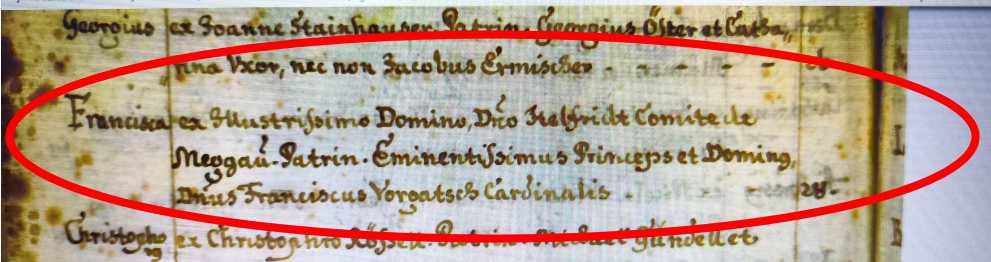 Georgius ex Joanne Stainhauser Patrin. Georgius Öster et Catha,,
rina Vxor, nec non Jacobus Ermischer - - - - -
Francisca ex Illustrissimo Domino, Dno Helfridt Comite de
Meggaú. Patrin. Eminentissimus Princeps et Dominus,
Dnus Franciscus Vorgatsch Cardinalis - - - 28.
Christopho ex Christophro Patrin. Michael Gundell et
rus